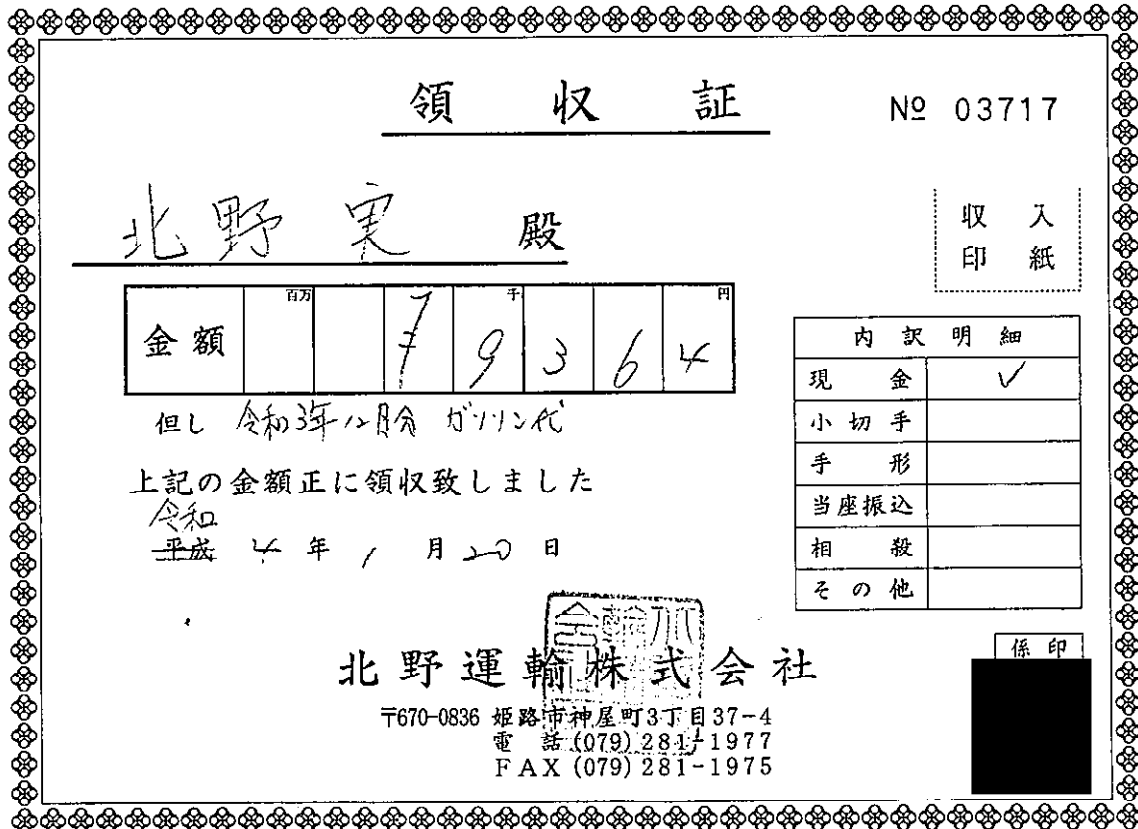 領収証
№ 03717
北野実 殿
収入
印紙
金額 百万 千 円
7 9 3 6 4
但し 令和3年12月分 ガソリン代
上記の金額正に領収致しました
令和
平成 4年 1月 20日
内訳明細
現金 ✓
小切手
手形
当座振込
相殺
その他
係印
北野運輸株式会社
〒670-0836 姫路市神屋町3丁目37-4
電話(079)281-1977
FAX(079)281-1975